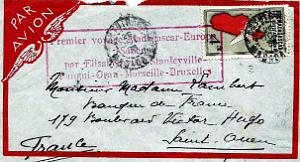 PAR
AVION
Premier voyage Madagascar-Europe
par Elisabethville-Stanleyville
Bangui-Oran-Marseille-Bruxelles
Monsieur Madame Vambert
Banque de France
179 Boulevard Victor Hugo
Saint-Ouen
France